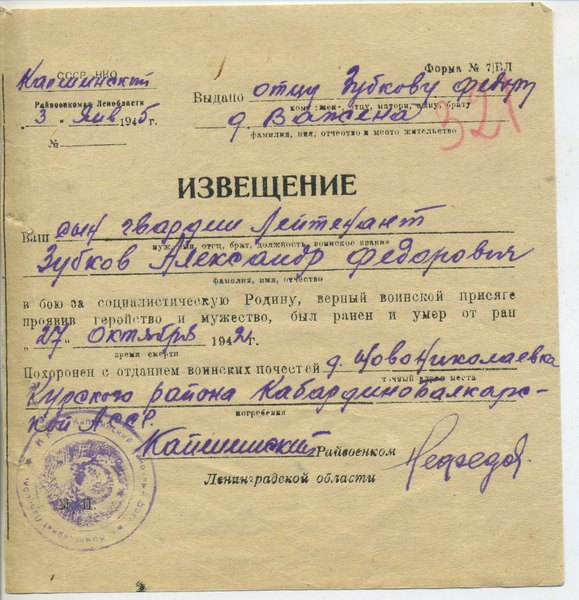 СССР НКО
Капшинский
Райвоенкомат Ленобласти
3 " Янв 1945г.
№
Форма № 7/БЛ
Выдано отцу Зубкову Федору
кому: жене, отцу, матери, сыну, брату
д. Важена
фамилия, имя, отчество и место жительство
321
ИЗВЕЩЕНИЕ
Ваш сын гвардии Лейтенант
муж, сын, отец, брат, должность, воинское звание
Зубков Александр Федорович
фамилия, имя, отчество
в бою за социалистическую Родину, верный воинской присяге
проявив геройство и мужество, был ранен и умер от ран
"27" Октября 1942г.
время смерти
Похоронен с отданием воинских почестей д. Ново Николаевка
точный адрес места
Курского района Кабардиновалкарс-
погребения
кой АССР.
Капшинский Райвоенком
Ленинградской области
М. П.